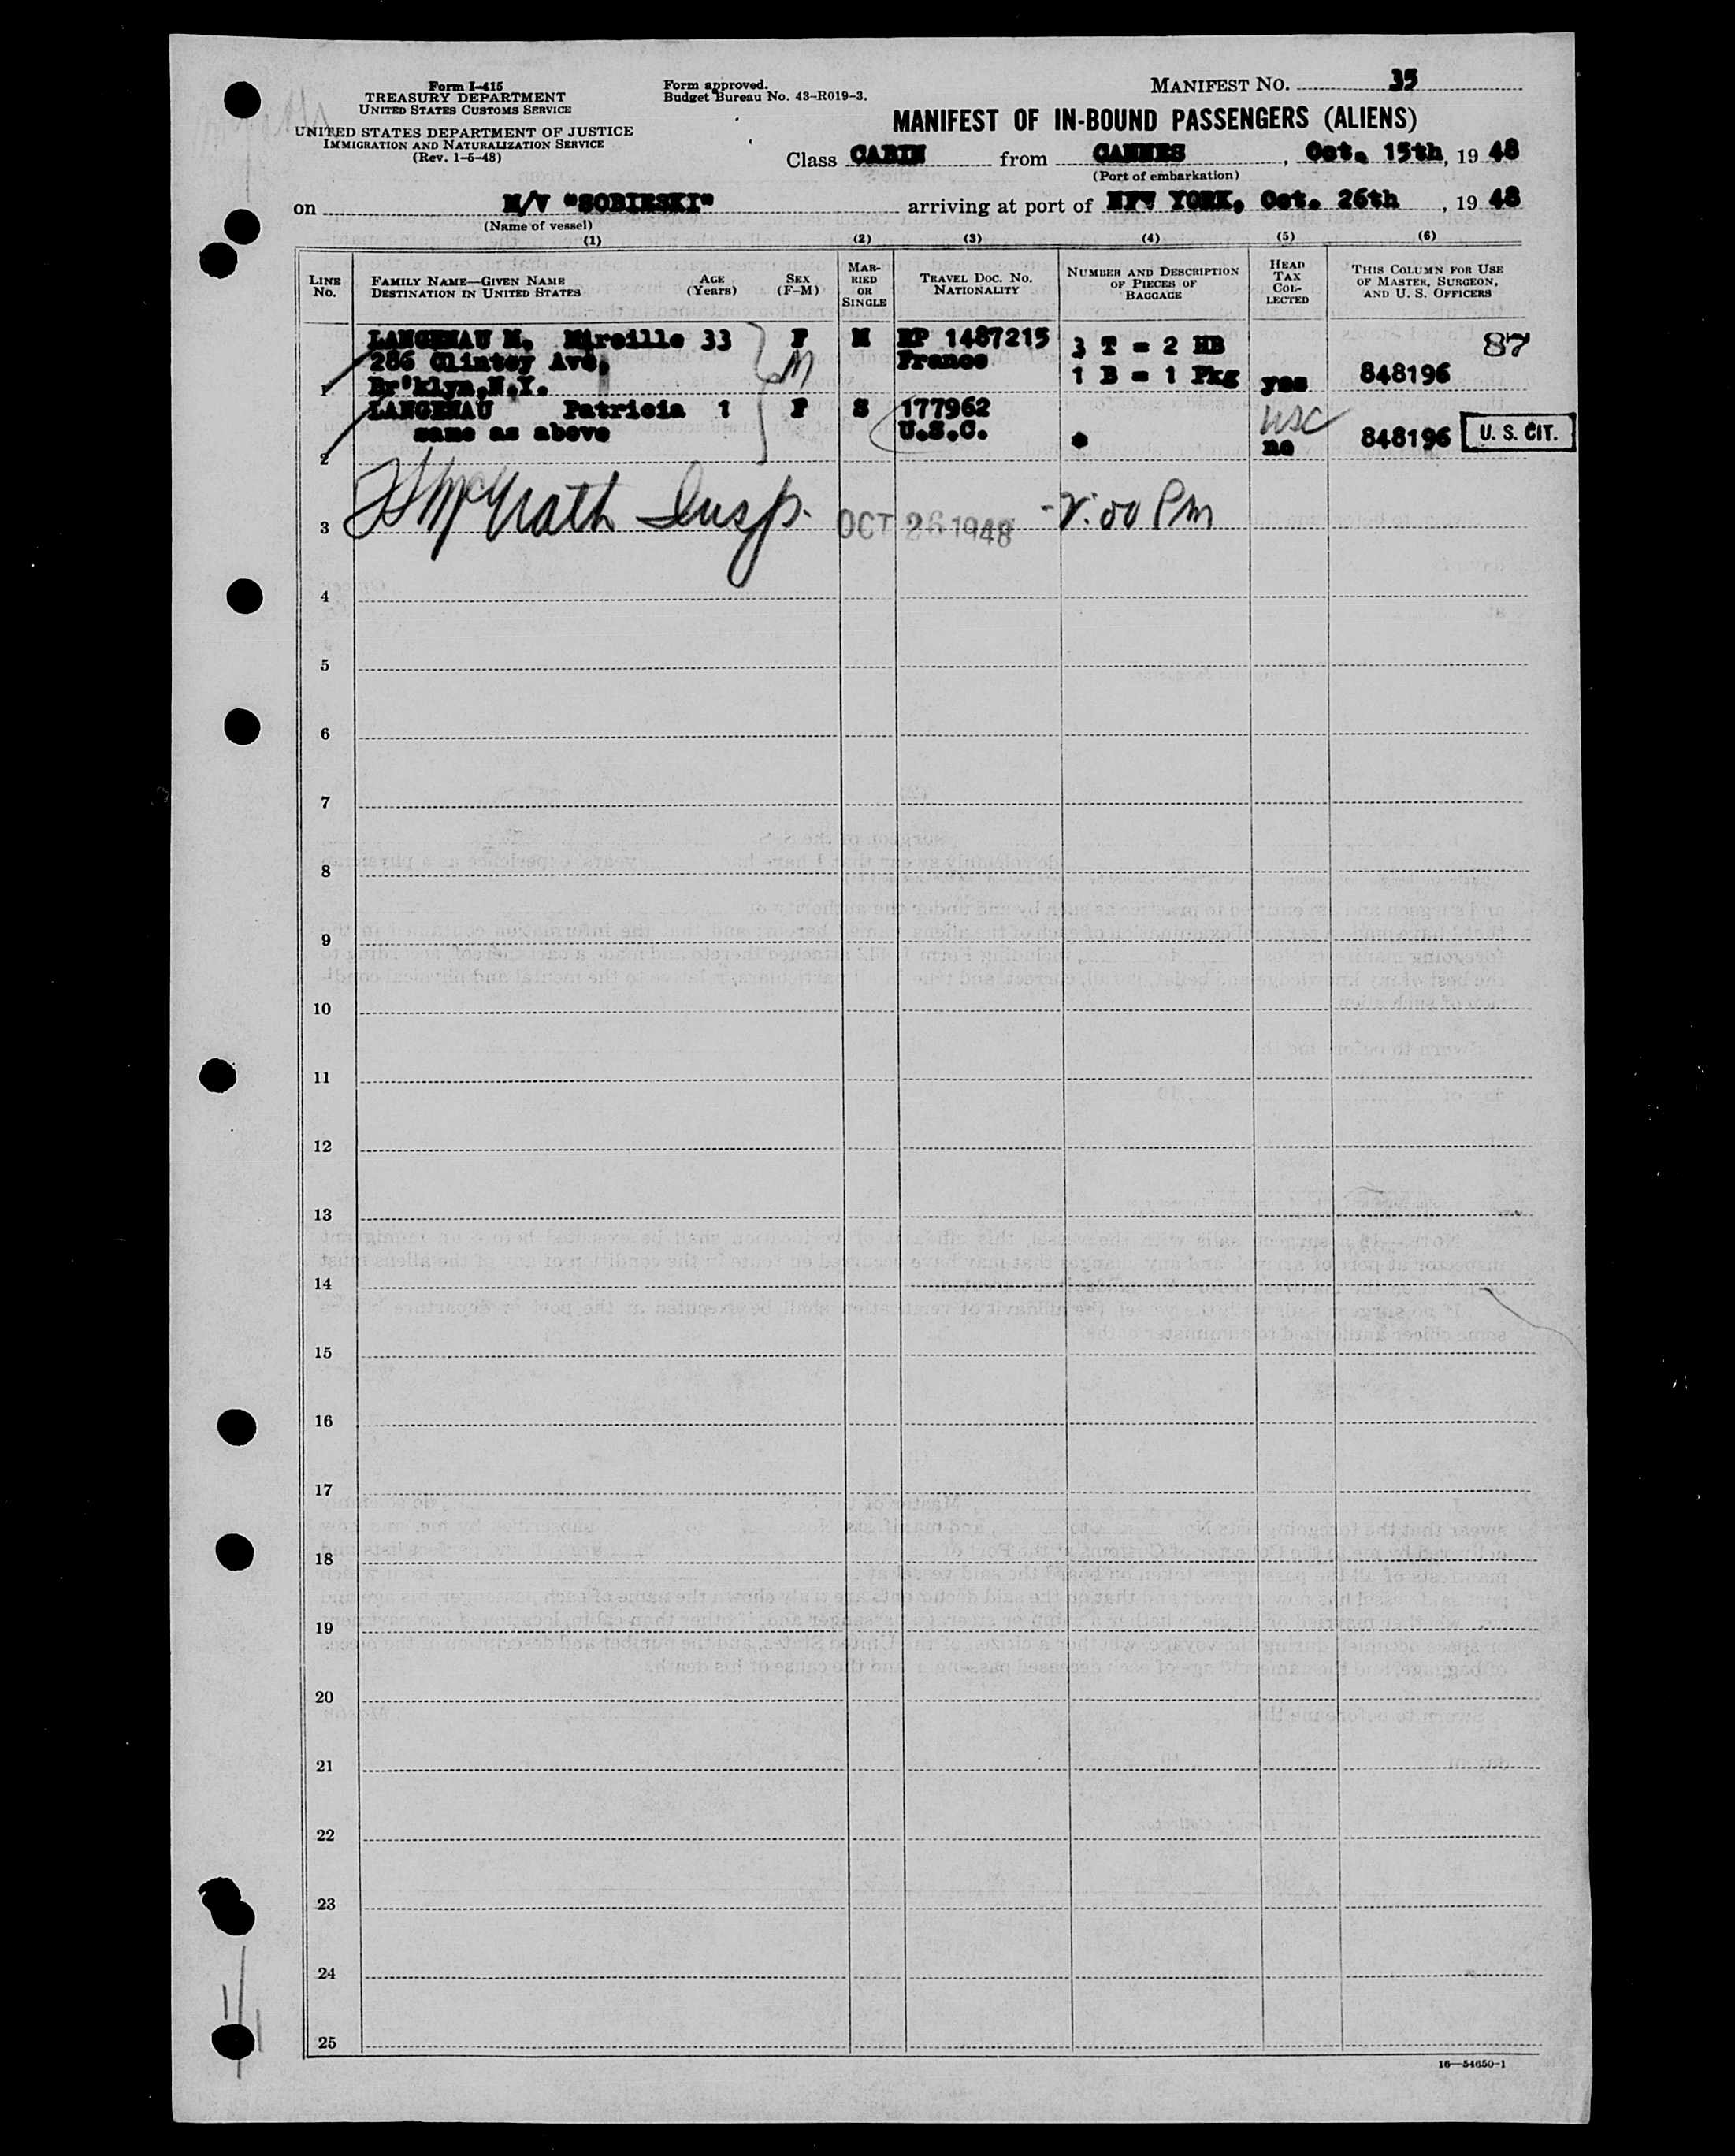 Form I-415
TREASURY DEPARTMENT
UNITED STATES CUSTOMS SERVICE
UNITED STATES DEPARTMENT OF JUSTICE
IMMIGRATION AND NATURALIZATION SERVICE
(Rev. 1-5-48)
Form approved.
Budget Bureau No. 43-R019-3.
MANIFEST NO. 35
MANIFEST OF IN-BOUND PASSENGERS (ALIENS)
Class CABIN from CANNES, Oct. 15th, 19 48
(Port of embarkation)
on M/V "SOBIESKI" arriving at port of NEW YORK, Oct. 26th, 19 48
(Name of vessel)
(1) (2) (3) (4) (5) (6)
LINE NO.
FAMILY NAME—GIVEN NAME
DESTINATION IN UNITED STATES
AGE (Years)
SEX (F-M)
MARRIED OR SINGLE
TRAVEL DOC. NO.
NATIONALITY
NUMBER AND DESCRIPTION OF PIECES OF BAGGAGE
HEAD TAX COLLECTED
THIS COLUMN FOR USE OF MASTER, SURGEON, AND U. S. OFFICERS
LANGENAU M. Mireille 33 F M RP 1487215 3 T = 2 HB 87
286 Clintoy Ave, M France
1 Br'klyn,N.Y. 1 B = 1 Pkg yes 848196
LANGENAU Patricia 1 F S 177962 USC
2 same as above U.S.C. no 848196 U. S. CIT.
3 McGrath Insp. OCT 26 1948 - 2:00 Pm
4
5
6
7
8
9
10
11
12
13
14
15
16
17
18
19
20
21
22
23
24
25
16—54650-1